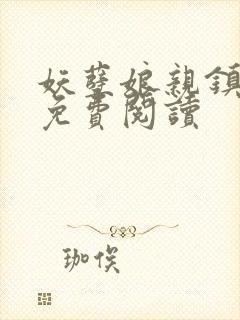 妖孽娘親鎮
免費閱讀
珈俟